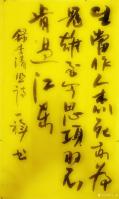 生當作人杰死亦為
鬼雄至今思項羽不
肯過江東
錄李清照詩
书